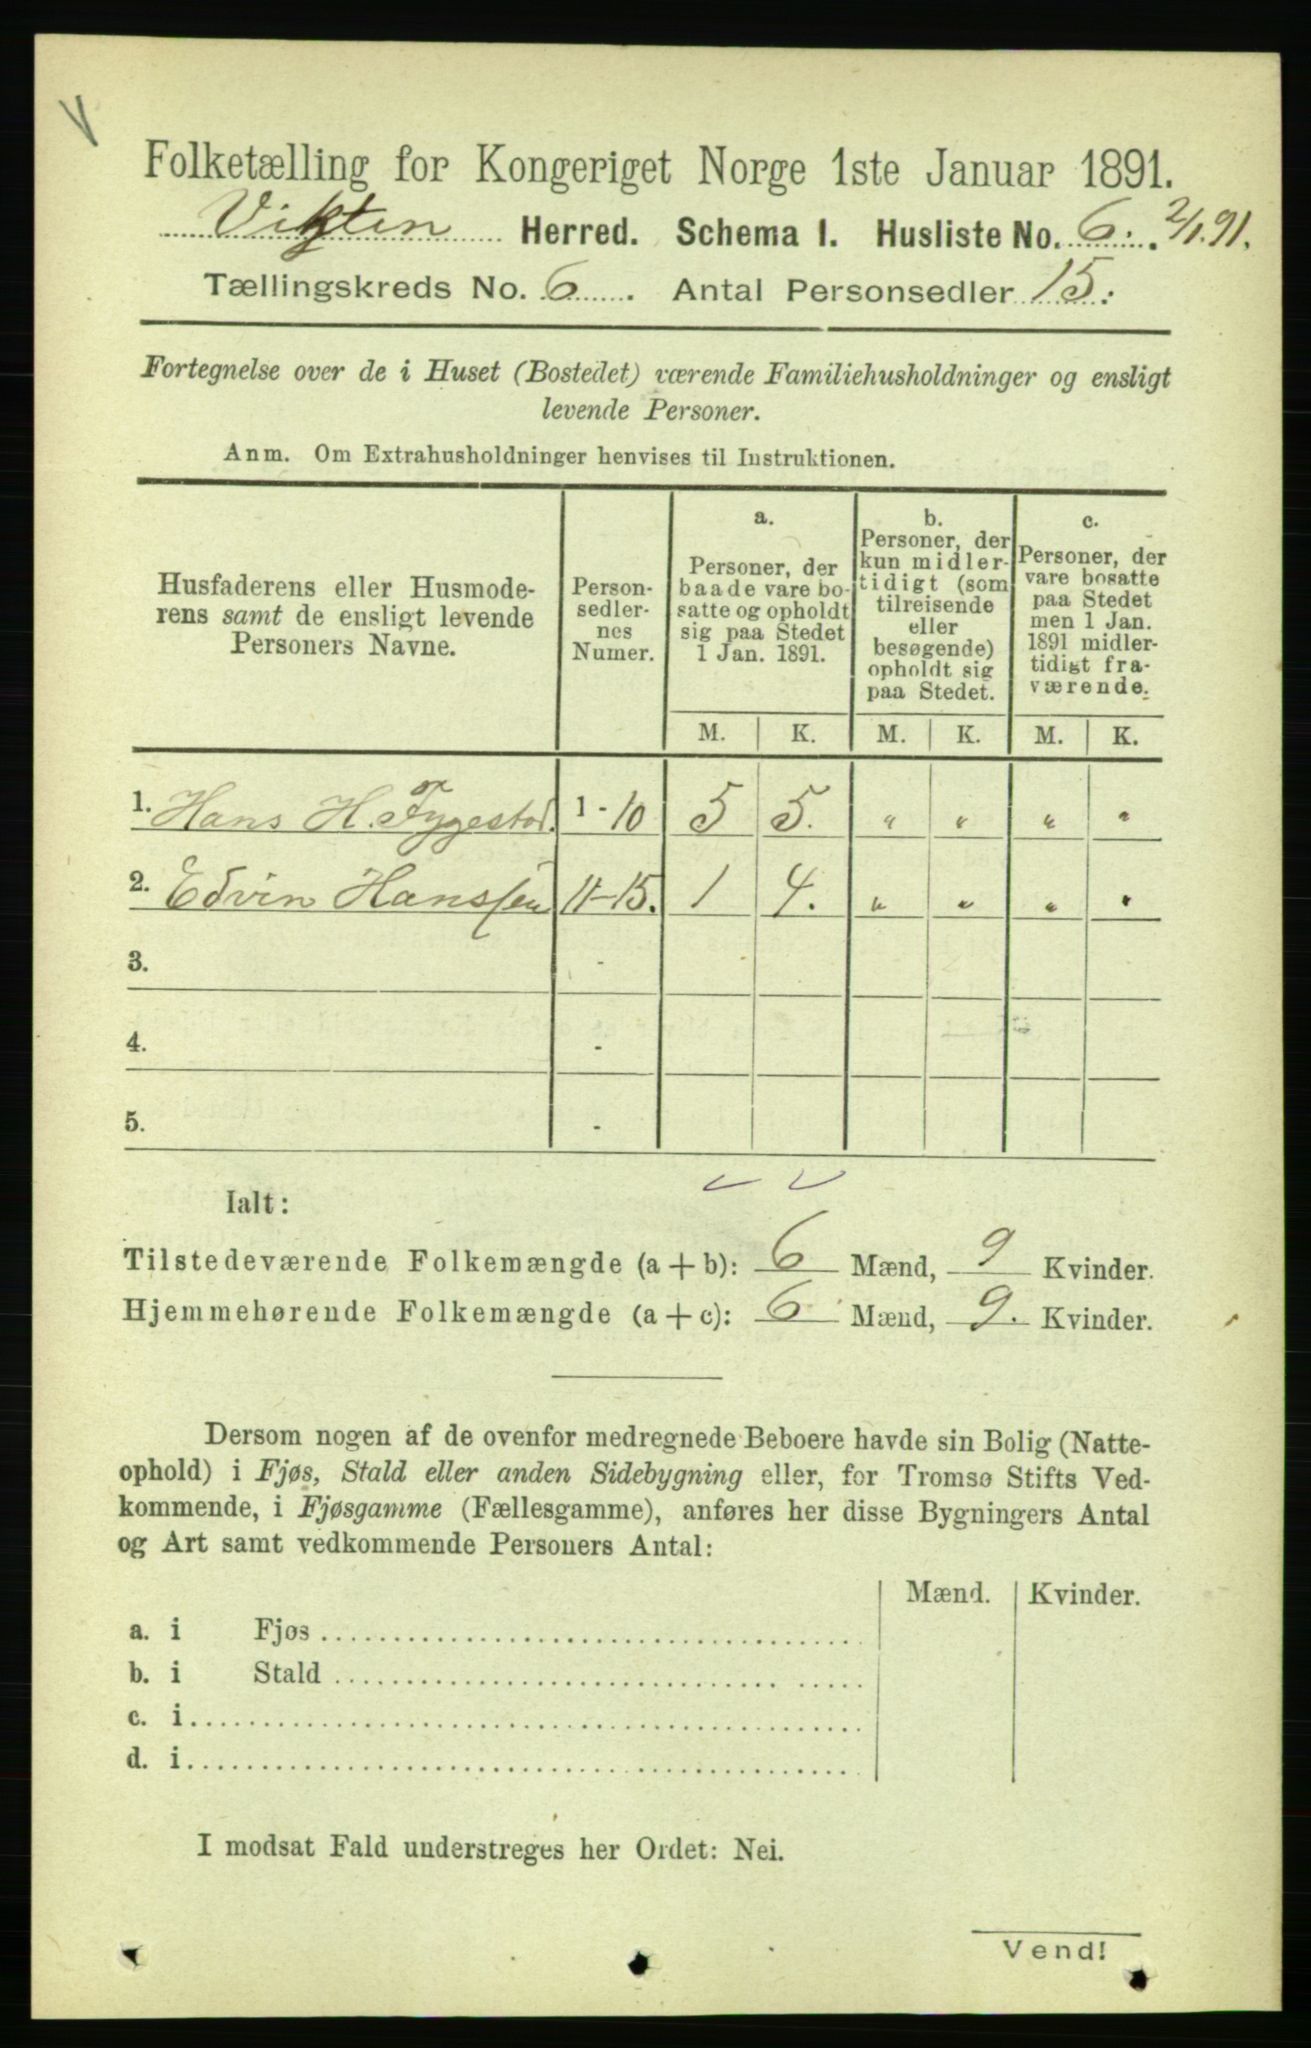 V
Folketælling for Kongeriget Norge 1ste Januar 1891.
Vikten Herred. Schema 1. Husliste No. 6. 2/1.91.
Tællingskreds No. 6. Antal Personsedler 15.
Fortegnelse over de i Huset (Bostedet) værende Familiehusholdninger og ensligt
levende Personer.
Anm. Om Extrahusholdninger henvises til Instruktionen.
Husfaderens eller Husmode-
rens samt de ensligt levende
Personers Navne.
Person-
sedler-
nes
Numer.
a.
Personer, der
baade vare bo-
satte og opholdt
sig paa Stedet
1 Jan. 1891.
b.
Personer, der
kun midler-
tidigt (som
tilreisende
eller
besøgende)
opholdt sig
paa Stedet.
c.
Personer, der
vare bosatte
paa Stedet
men 1 Jan.
1891 midler-
tidigt fra-
værende.
M. K. M. K. M. K.
1. Hans H. Tygestad. 1-10 5 5. " " " "
2. Edvin Hanssen 11-15. 1 4. " " " "
3. -
4. -
5. -
Ialt:
Tilstedeværende Folkemængde (a + b): 6 Mænd, 9 Kvinder.
Hjemmehørende Folkemængde (a + c): 6 Mænd, 9. Kvinder.
Dersom nogen af de ovenfor medregnede Beboere havde sin Bolig (Natte-
ophold) i Fjøs, Stald eller anden Sidebygning eller, for Tromsø Stifts Ved-
kommende, i Fjøsgamme (Fællesgamme), anføres her disse Bygningers Antal
og Art samt vedkommende Personers Antal:
Mænd. Kvinder.
a. i Fjøs
b. i Stald
c. i
d. i
I modsat Fald understreges her Ordet: Nei.
Vend!